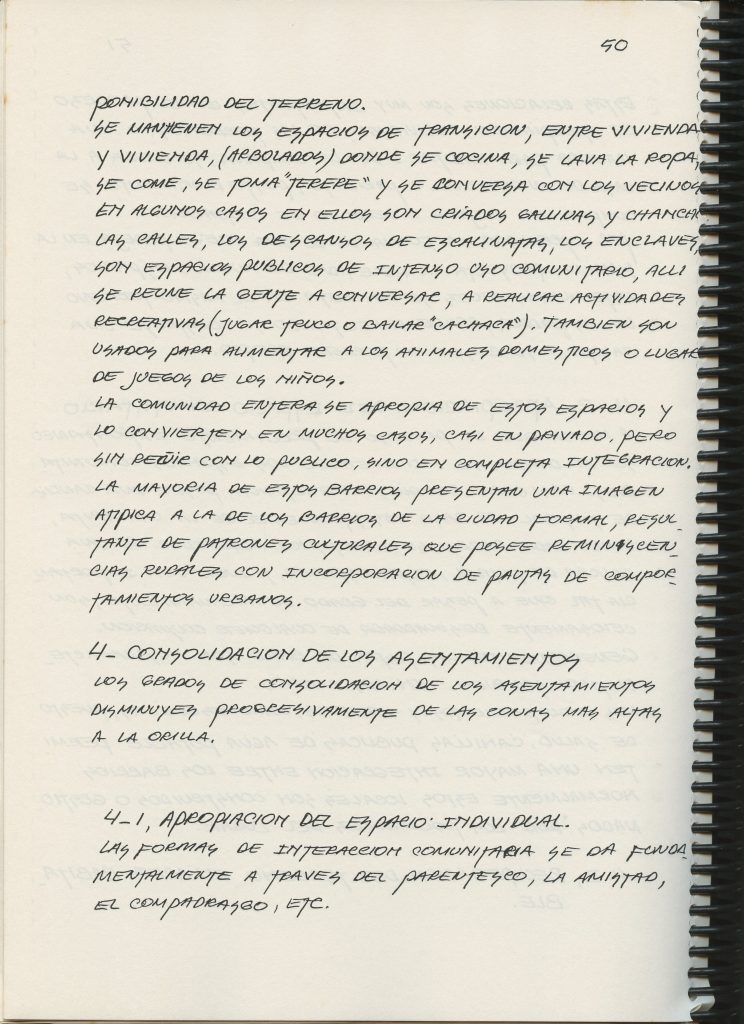 50
PONIBILIDAD DEL TERRENO.
SE MANTIENEN LOS ESPACIOS DE TRANSICION, ENTRE VIVIENDA
Y VIVIENDA, (ARBOLADOS) DONDE SE COCINA, SE LAVA LA ROPA,
SE COME, SE TOMA "TERERE" Y SE CONVERSA CON LOS VECINOS
EN ALGUNOS CASOS EN ELLOS SON CRIADOS GALLINAS Y CHANCH
LAS CALLES, LOS DESCANSOS DE ESCALINATAS, LOS ENCLAVES,
SON ESPACIOS PUBLICOS DE INTENSO USO COMUNITARIO, ALLI
SE REUNE LA GENTE A CONVERSAR, A REALIZAR ACTIVIDADES
RECREATIVAS (JUGAR TRUCO O BAILAR "CACHACA"). TAMBIEN SON
USADOS PARA ALIMENTAR A LOS ANIMALES DOMESTICOS O LUGAR
DE JUEGOS DE LOS NIÑOS.
LA COMUNIDAD ENTERA SE APROPIA DE ESTOS ESPACIOS Y
LO CONVIERTEN EN MUCHOS CASOS, CASI EN PRIVADO, PERO
SIN REÑIR CON LO PUBLICO, SINO EN COMPLETA INTEGRACION.
LA MAYORIA DE ESTOS BARRIOS PRESENTAN UNA IMAGEN
ATIPICA A LA DE LOS BARRIOS DE LA CIUDAD FORMAL, RESUL-
TANTE DE PATRONES CULTURALES QUE POSEE REMINISCEN-
CIAS RURALES CON INCORPORACION DE PAUTAS DE COMPOR-
TAMIENTOS URBANOS.
4- CONSOLIDACION DE LOS ASENTAMIENTOS
LOS GRADOS DE CONSOLIDACION DE LOS ASENTAMIENTOS
DISMINUYES PROGRESIVAMENTE DE LAS ZONAS MAS ALTAS
A LA ORILLA.
4-1, APROPIACION DEL ESPACIO: INDIVIDUAL.
LAS FORMAS DE INTERACCION COMUNITARIA SE DA FUNDA-
MENTALMENTE A TRAVES DEL PARENTESCO, LA AMISTAD,
EL COMPADRASGO, ETC.